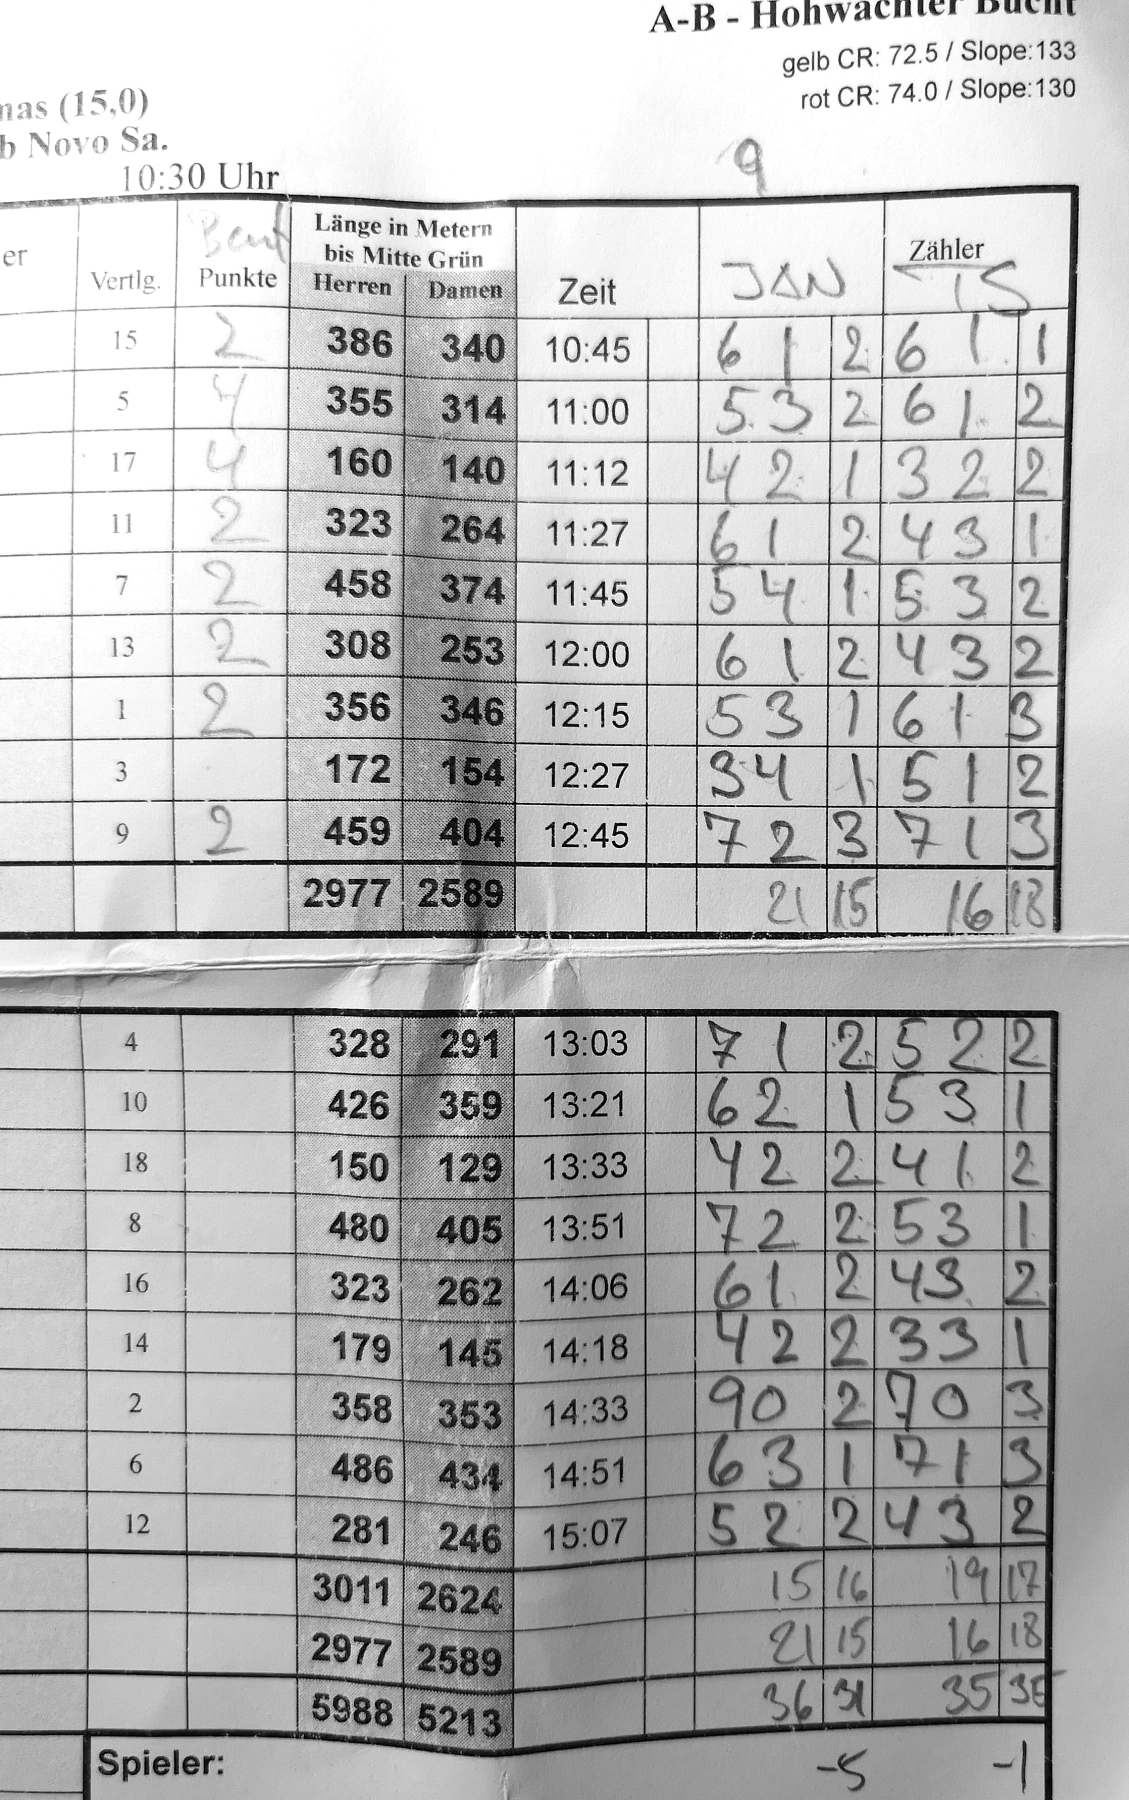 A-B - Hohwachter Bucht
gelb CR: 72.5 / Slope:133
rot CR: 74.0 / Slope:130
mas (15,0)
b Novo Sa.
10:30 Uhr
9
er Vertlg. Punkte Länge in Metern bis Mitte Grün Herren Damen Zeit JAN Zähler TS
15 2 386 340 10:45 6 1 2 6 1 1
5 4 355 314 11:00 5 3 2 6 1 2
17 4 160 140 11:12 4 2 1 3 2 2
11 2 323 264 11:27 6 1 2 4 3 1
7 2 458 374 11:45 5 4 1 5 3 2
13 2 308 253 12:00 6 1 2 4 3 2
1 2 356 346 12:15 5 3 1 6 1 3
3 172 154 12:27 3 4 1 5 1 2
9 2 459 404 12:45 7 2 3 7 1 3
2977 2589 21 15 16 18
4 328 291 13:03 7 1 2 5 2 2
10 426 359 13:21 6 2 1 5 3 1
18 150 129 13:33 4 2 2 4 1 2
8 480 405 13:51 7 2 2 5 3 1
16 323 262 14:06 6 1 2 4 3 2
14 179 145 14:18 4 2 2 3 3 1
2 358 353 14:33 9 0 2 7 0 3
6 486 434 14:51 6 3 1 7 1 3
12 281 246 15:07 5 2 2 4 3 2
3011 2624 15 16 19 17
2977 2589 21 15 16 18
5988 5213 36 31 35 35
Spieler: -5 -1